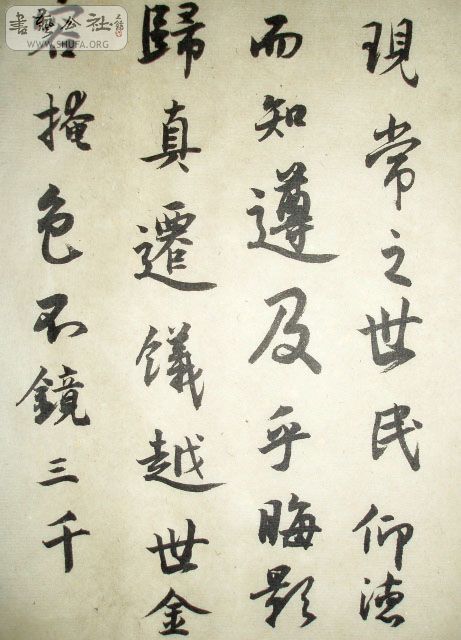 現常之世民仰德
而知遵及乎晦影
歸真遷儀越世金
容掩色不鏡三千
書藝公社
WWW.SHUFA.ORG